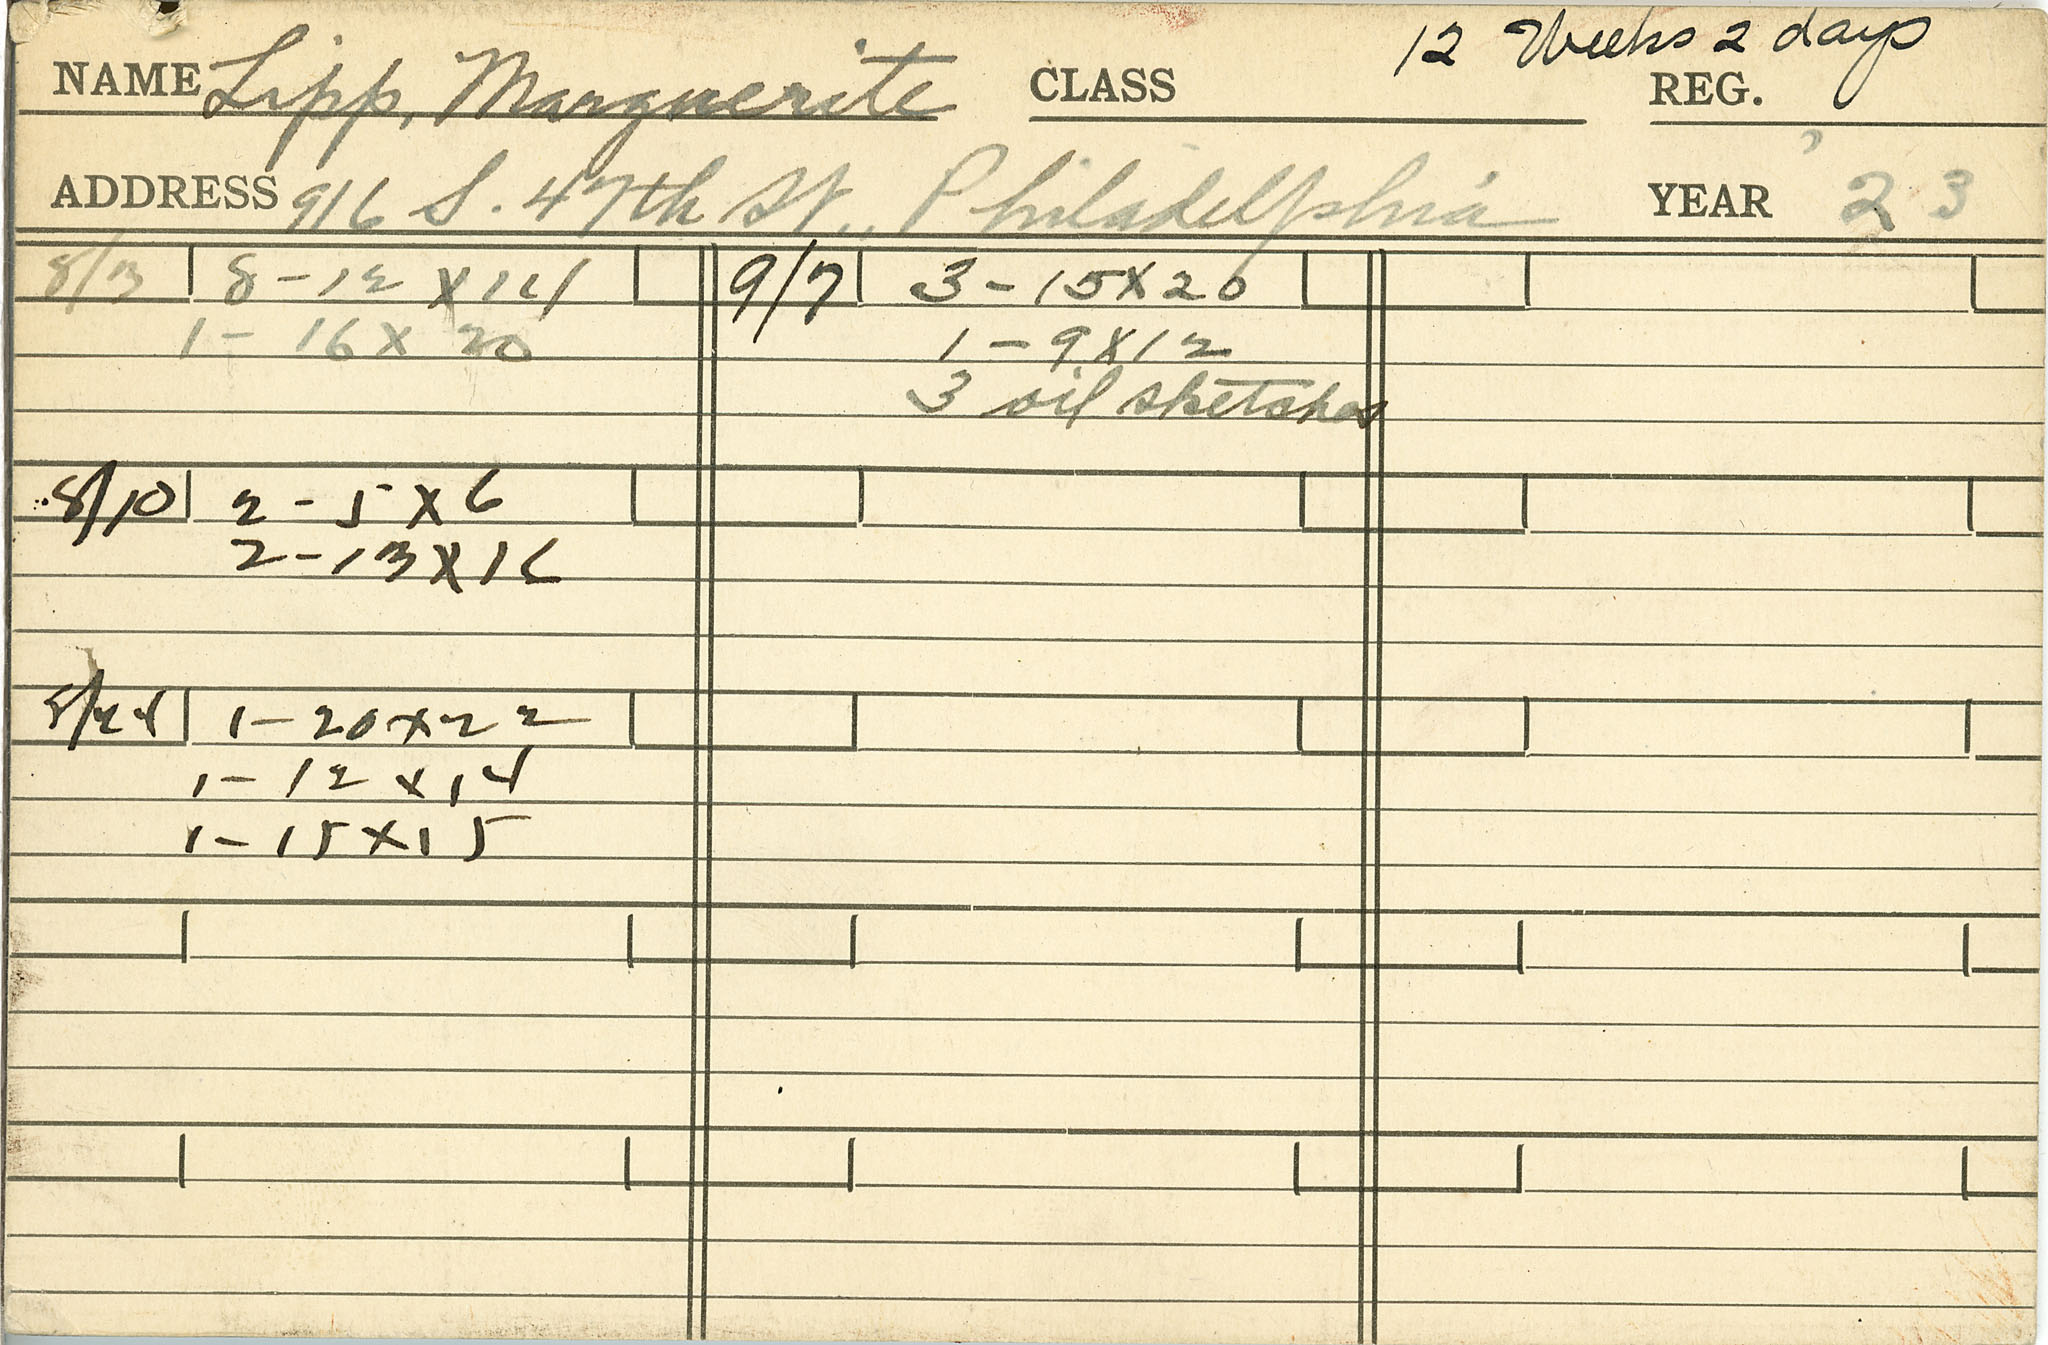 12 Weeks 2 days
NAME Lipp, Marguerite CLASS REG.
ADDRESS 916 S. 47th St., Philadelphia YEAR 23
8/3 8-12 x 14
1- 16 x 20
8/10 2-5 x 6
2-13 x 16
8/24 1-20 x 22
1-12 x 14
1-15 x 15
9/7 3-15 x 20
1-9 x 12
3 oil sketches